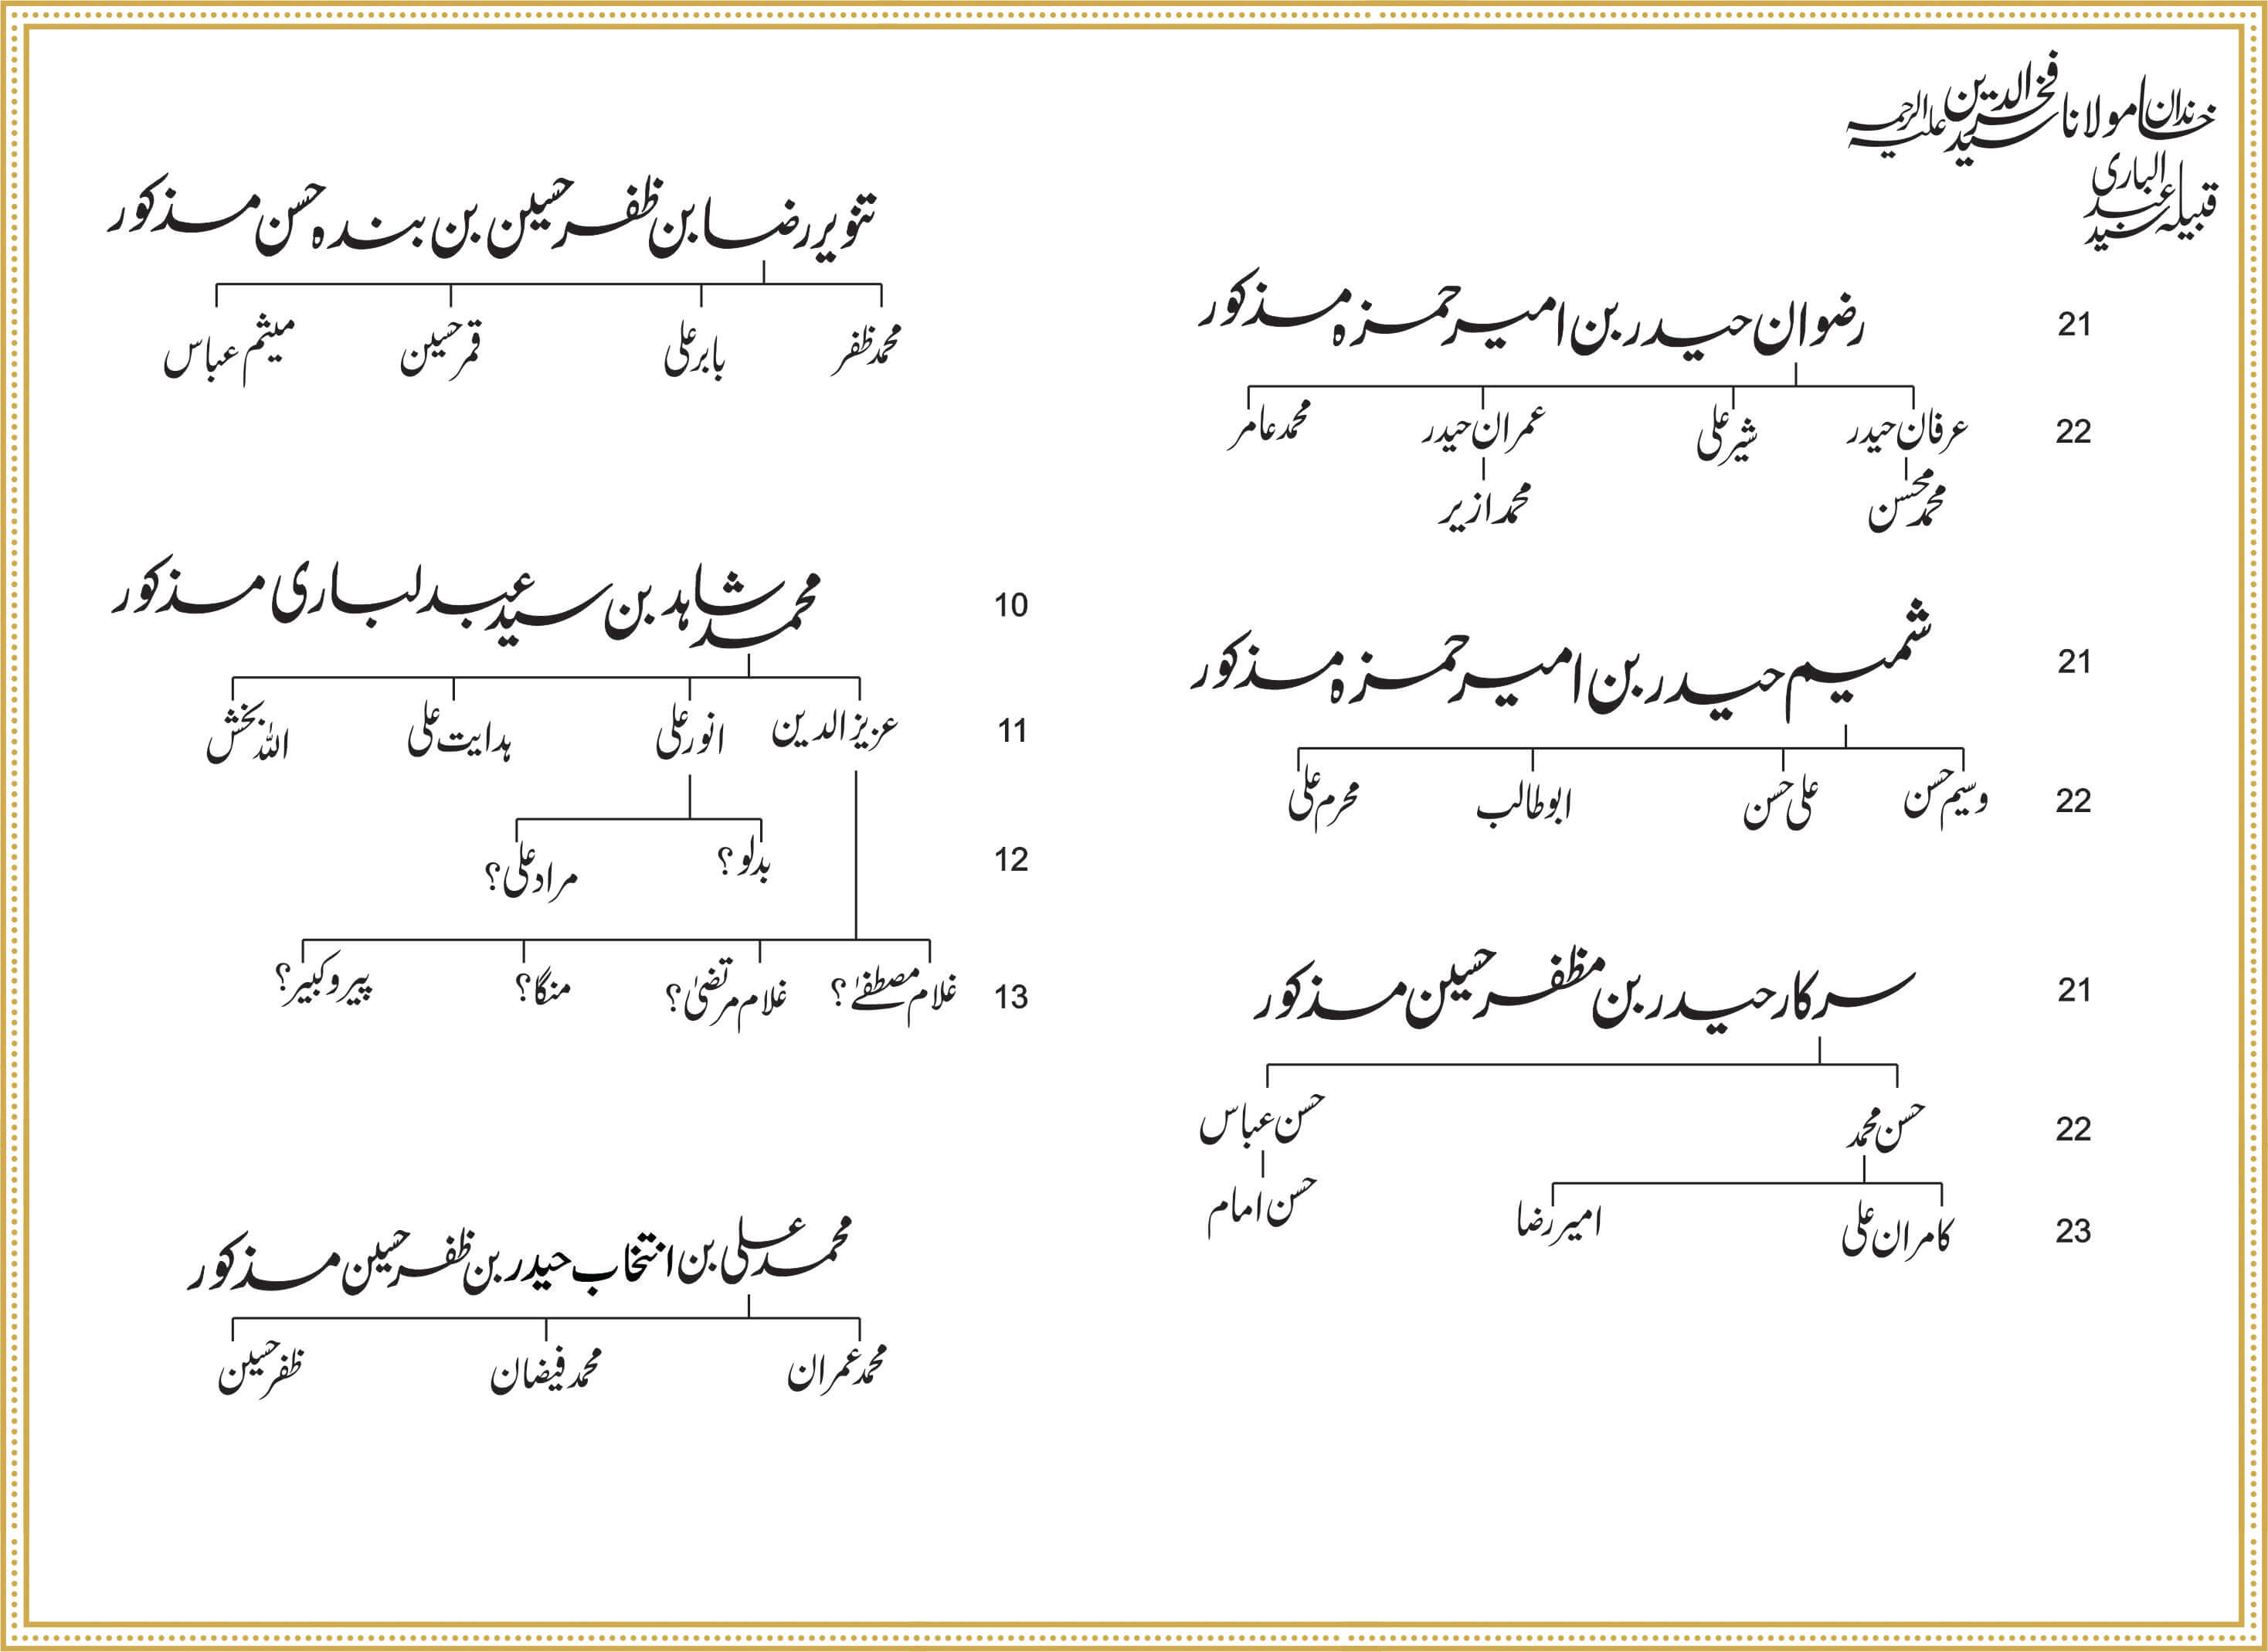 خاندان مولانا سید فخرالدین علیہ الرحمہ
قبیلہ سید عبد الباری
21 رضوان حیدر بن امیر حمزہ مذکور
22 عرفان حیدر شیر علی عمران حیدر محمد عامر
محمد محسن محمد ازیر
21 شمیم حیدر بن امیر حمزہ مذکور
22 وسیم حسن علی حسن ابوطالب محرم علی
21 سرکار حیدر بن مظفر حسین مذکور
22 حسن محمد حسن عباس
23 کامران علی امیر رضا حسن امام
تنویر رضا بن ظفر حسین بن بندہ حسن مذکور
محمد ظفر بابر علی قمر حسین میثم عباس
10 محمد شاہد بن سید عبدلباری مذکور
11 عزیز الدین انور علی ہدایت علی اللہ بخش
12 بدلو؟ مراد علی؟
13 غلام مصطفےٰ؟ غلام مرتضیٰ؟ منگا؟ پیرو کبیر؟
محمد علی بن انتخاب حیدر بن ظفر حسین مذکور
محمد عمران محمد فیضان ظفر حسین